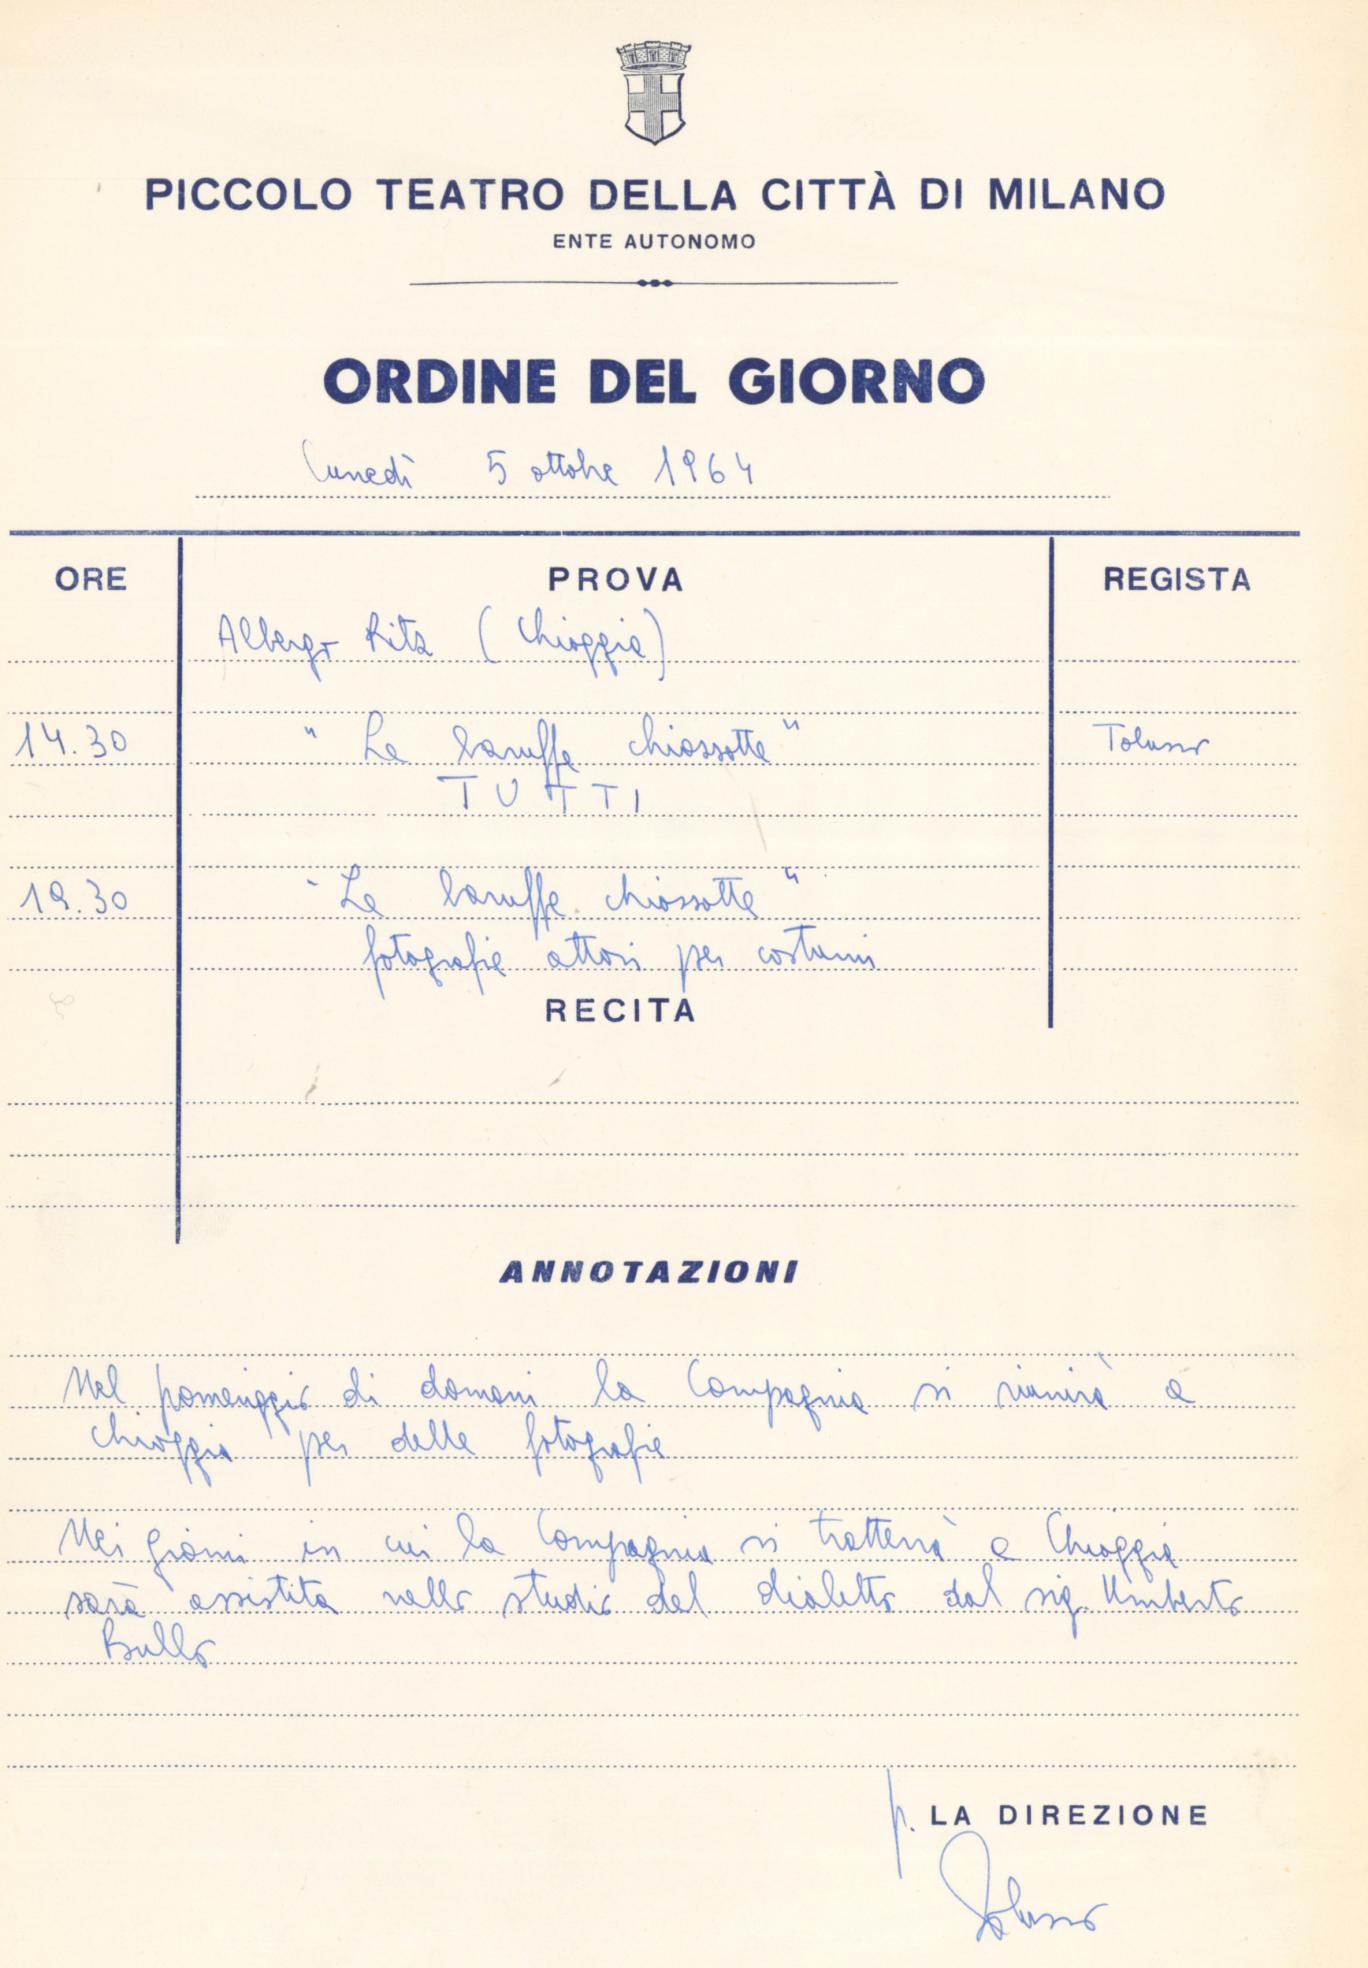 PICCOLO TEATRO DELLA CITTÀ DI MILANO
ENTE AUTONOMO
ORDINE DEL GIORNO
lunedì 5 ottobre 1964
ORE PROVA REGISTA
Albergo Ritz (Chioggia)
14.30 "Le baruffe chiozzotte" Tolusso
TUTTI
19.30 "Le baruffe chiozzotte"
fotografie attori per costumi
RECITA
ANNOTAZIONI
Nel pomeriggio di domani la Compagnia si riunirà a
Chioggia per delle fotografie
Nei giorni in cui la Compagnia si tratterrà a Chioggia
sarà assistita nello studio del dialetto dal sig. Umberto
Bullo
p. LA DIREZIONE
Tolusso